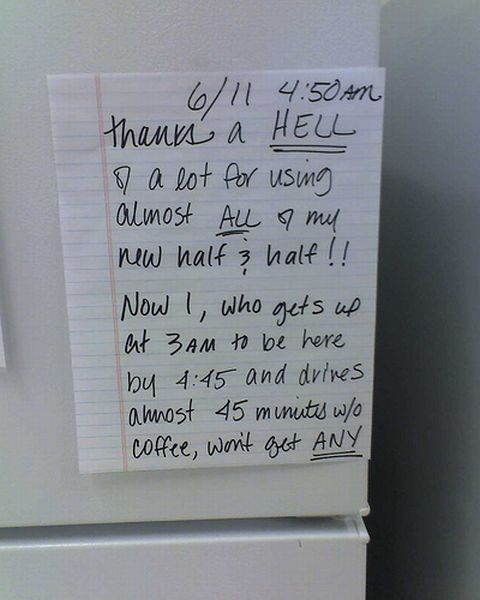 6/11 4:50 AM
thanks a HELL
of a lot for using
almost ALL of my
new half & half!!
Now I, who gets up
at 3AM to be here
by 4:45 and drives
almost 45 minutes w/o
coffee, won't get ANY